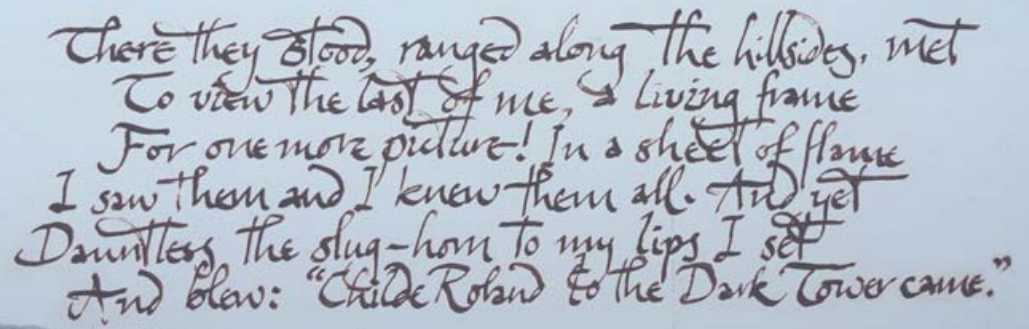 There they stood, ranged along the hillsides, met
To view the last of me, a living frame
For one more picture! In a sheet of flame
I saw them and I knew them all. And yet
Dauntless the slug-horn to my lips I set
And blew: "Childe Roland to the Dark Tower came."